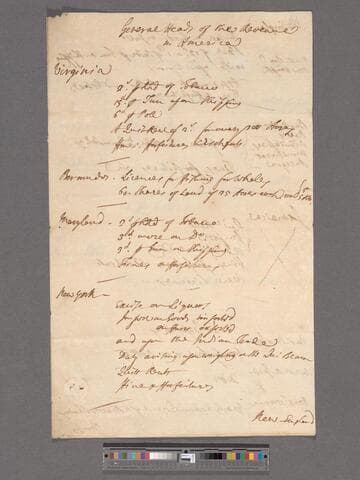 General Heads of the Revenue
in America
Virginia
2s. p hhd of Tobacco
15d. p Tun upon Shipping
6d. p Poll
A Quitrent of 2s. for every 100 Acres
fines, forfeitures,
Bermudos - Licences for fishing for Whales
Shares of Land of 25 Acres each
Maryland - 2s. p hhd of Tobacco
3d. more on Do.
p Tun on Shipping
Fines & forfeitures
New York -
Excise on Liquors
Impost on Goods imported
on furrs exported
and upon the Indian Trade
Duty arising upon weighing at the Beam
Quitt Rents
fines & forfeitures
New England